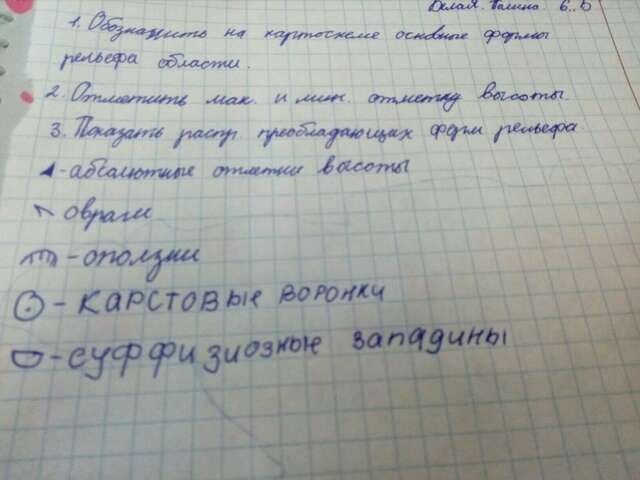 Делал. Полина 6..Б
1. Обозначить на картосхеме основные формы
рельефа области.
2. Отметить мак. и мин. отметку высоты.
3. Показать распр. преобладающих форм рельефа
- абсолютные отметки высоты
овраги
- оползни
- КАРСТОВЫЕ ВОРОНКИ
- суффизиозные западины